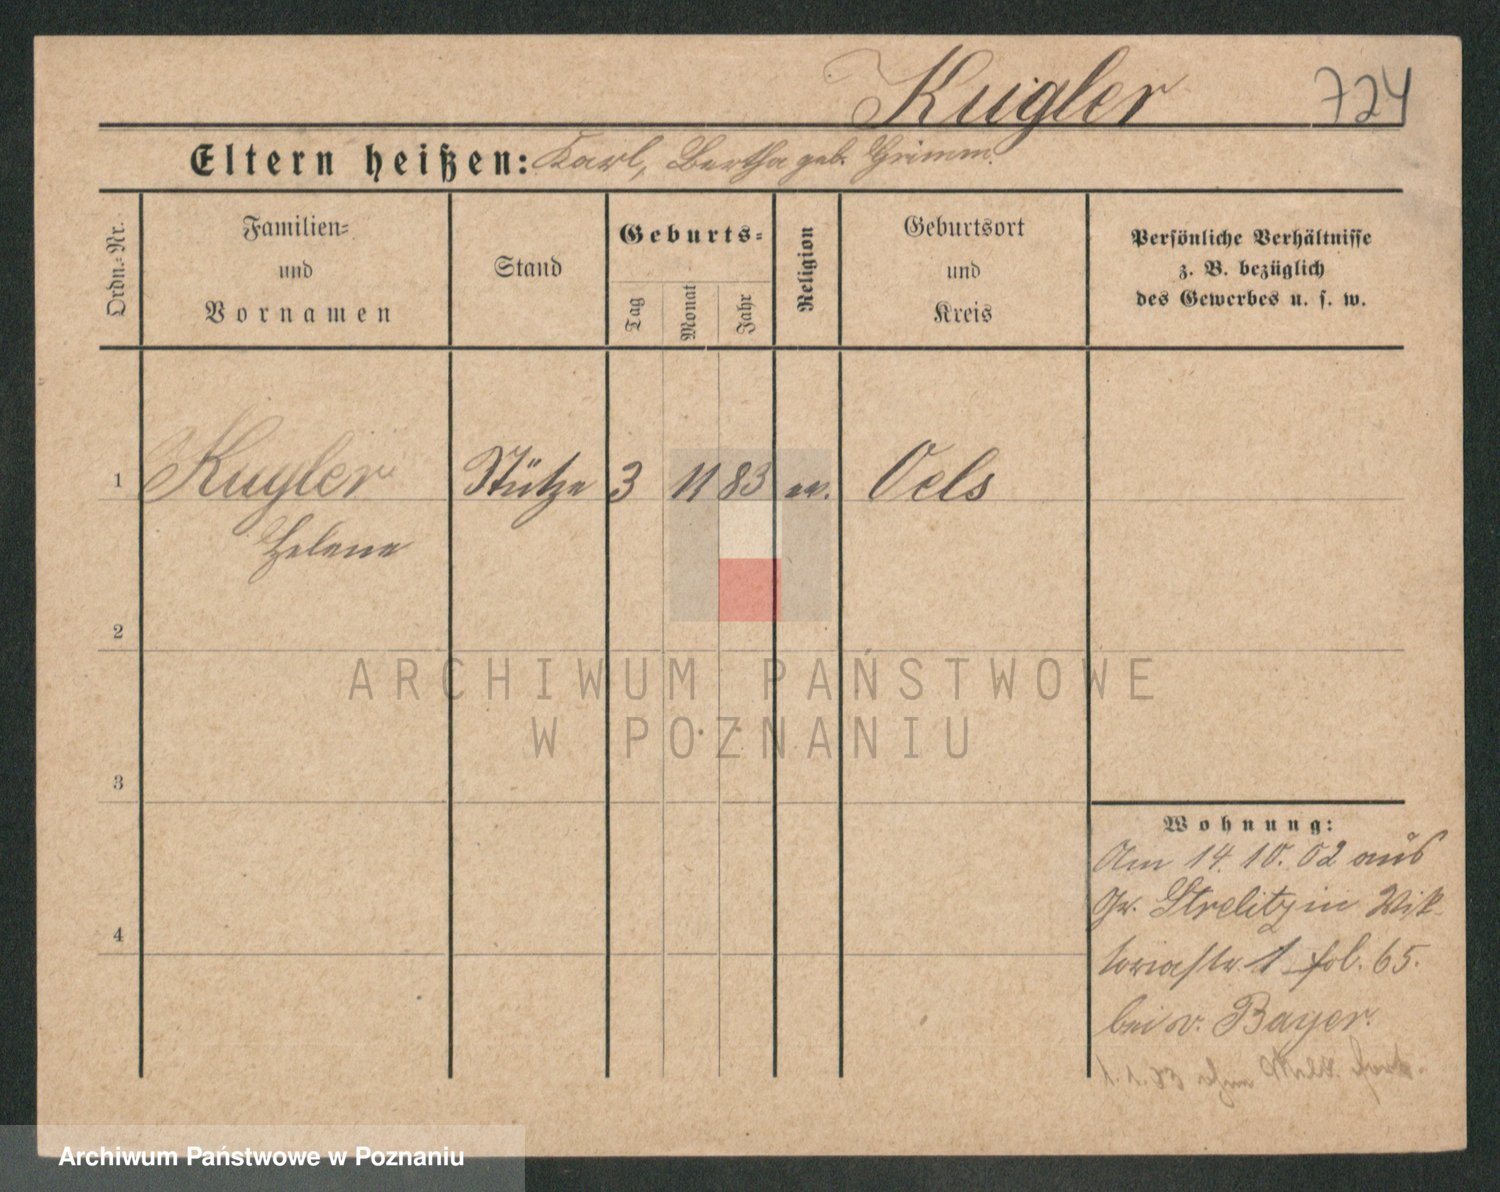 Kugler 724
Eltern heißen: Karl, Bertha geb. Grimm.
Ordn.-Nr.
Familien-
und
Vornamen
Stand
Geburts-
Tag
Monat
Jahr
Religion
Geburtsort
und
Kreis
Persönliche Verhältnisse
z. B. bezüglich
des Gewerbes u. s. w.
1 Kugler Stütze 3 11 83 ev. Oels
Helene
2
3
4
Wohnung:
Am 14.10.02 aus
Gr. Strelitz in Vik-
toriastr. 1 fol. 65.
bei v. Bayer.
ARCHIWUM PAŃSTWOWE
W POZNANIU
Archiwum Państwowe w Poznaniu